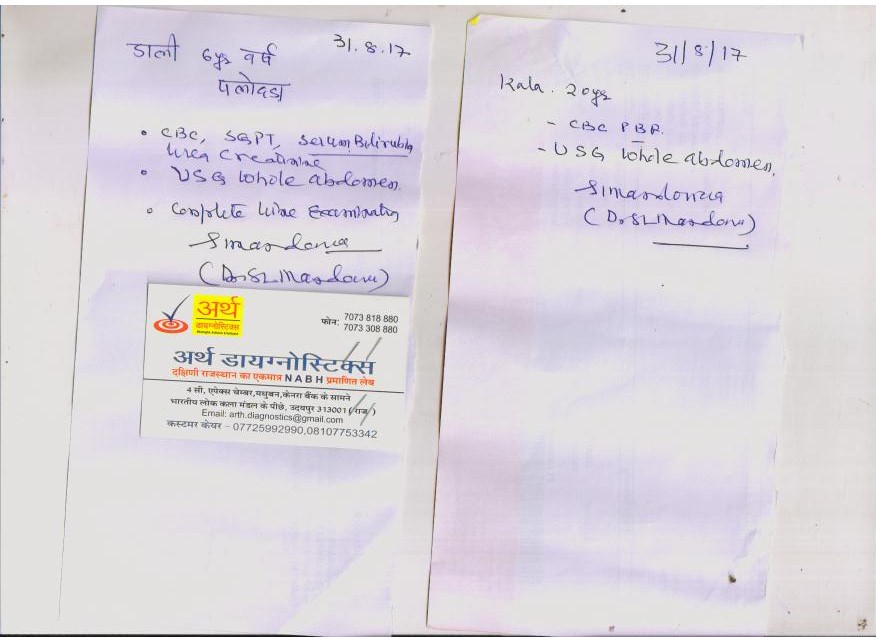 31.8.17
डाली 6yr वर्ष
पलोदडा
• CBC, SGPT, Serum Bilirubin
Urea Creatinine
• USG whole abdomen
• Complete Urine Examination
(Dr SL Mandowra)
अर्थ
डायग्नोस्टिक्स
फोन: 7073 818 880
7073 308 880
अर्थ डायग्नोस्टिक्स
दक्षिणी राजस्थान का एकमात्र NABH प्रमाणित लेब
4 सी, एपेक्स चेम्बर,मधुबन,केनरा बैंक के सामने
भारतीय लोक कला मंडल के पीछे, उदयपुर 313001 (राज.)
Email: arth.diagnostics@gmail.com
कस्टमर केयर - 07725992990,08107753342
31/8/17
Kala . 20yr
- CBC PBF
- USG whole abdomen,